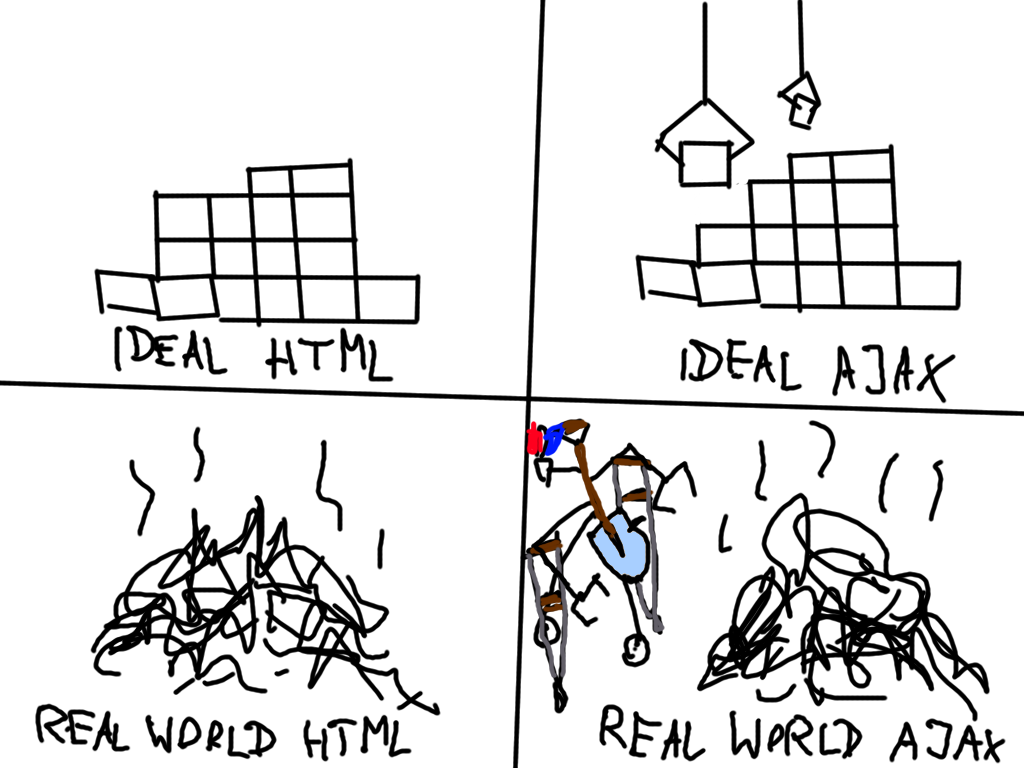 IDEAL HTML
IDEAL AJAX
REAL WORLD HTML
REAL WORLD AJAX